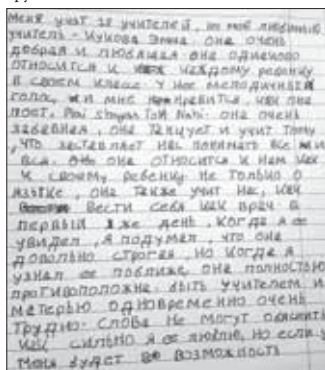 Меня учат 18 учителей, но мой любимый
учитель - Жукова Эмма она очень
добрая и любящая она одинаково
относится к каждому ребенку
в своем классе у нее мелодичный
голос, и мне нравится, как она
поет. она очень
забавная, она танцует и учит тому
, что заставляет нас понимать все
она относится к нам как
к своему ребенку не только о
языке, она также учит нас, как
вести себя как врач в
первый же день, когда я ее
увидел, я подумал, что она
довольно строгая, но когда я
узнал ее поближе она полностью
противоположна. быть учителем и
матерью одновременно очень
трудно. слова не могут объяснить
как сильно я ее люблю, но если у
меня будет возможность